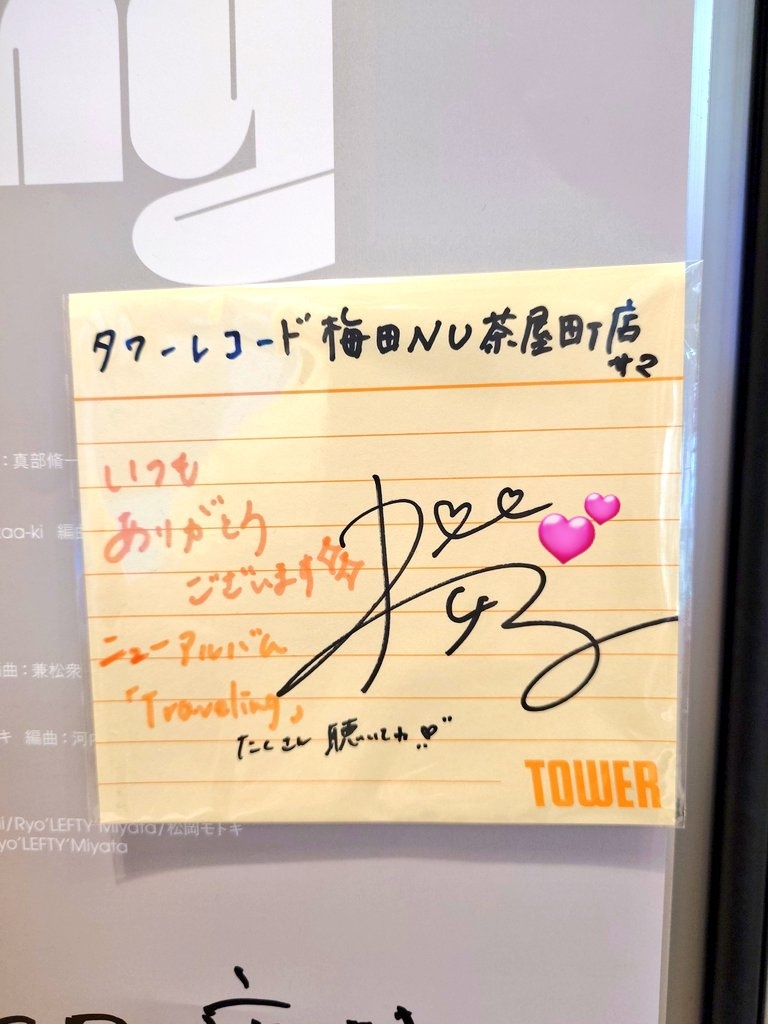 ng
タワーレコード 梅田NU茶屋町店
サマ
いつも
ありがとう
ございます
ニューアルバム
「Traveling」
たくさん 聴いてね
TOWER
：真部脩一
taa-ki 編曲
曲：兼松衆
キ 編曲：河内
i/Ryo'LEFTY'Miyata/松岡モトキ
yo'LEFTY'Miyata